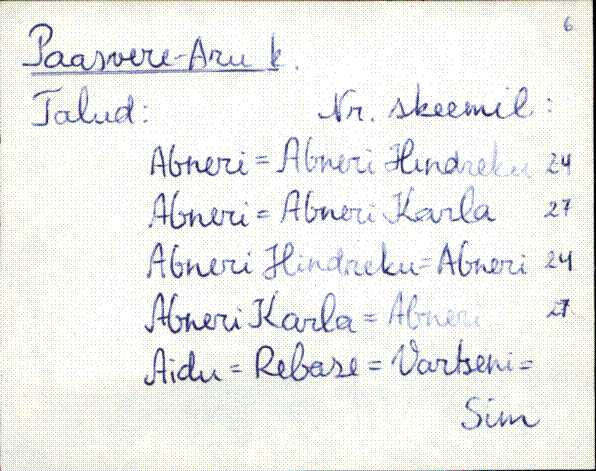 6
Paasvere-Aru k.
Talud: Nr. skeemil:
Abneri = Abneri Hindreku 24
Abneri = Abneri Karla 27
Abneri Hindreku = Abneri 24
Abneri Karla = Abneri 27
Aidu = Rebase = Vartseni =
Sim